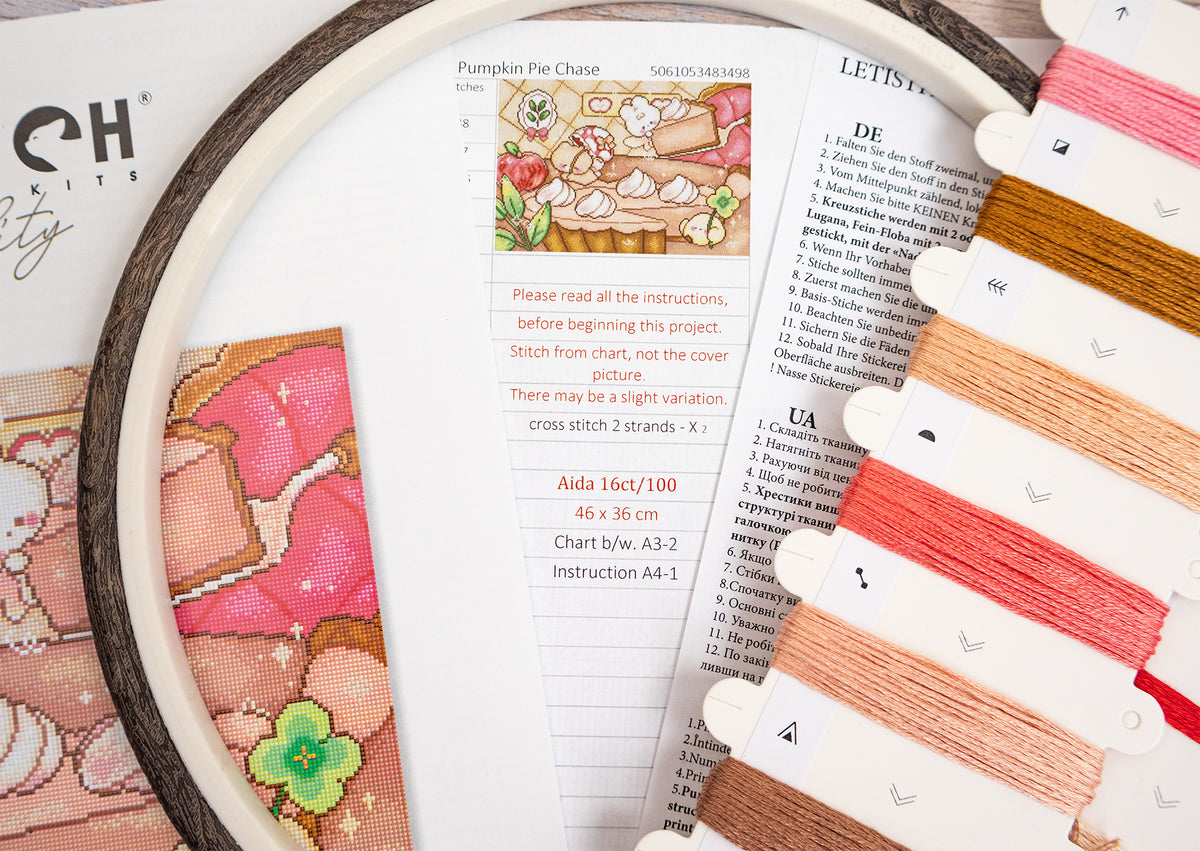 CH®
KITS
Pumpkin Pie Chase 5061053483498
tches
Please read all the instructions,
before beginning this project.
Stitch from chart, not the cover
picture.
There may be a slight variation.
cross stitch 2 strands - X 2
Aida 16ct/100
46 x 36 cm
Chart b/w. A3-2
Instruction A4-1
DE
1. Falten Sie den Stoff zweimal,
2. Ziehen Sie den Stoff in den
3. Vom Mittelpunkt zählend,
4. Machen Sie bitte KEINEN
5. Kreuzstiche werden mit 2
Lugana, Fein-Floba mit
gestickt, mit der
6. Wenn Ihr Vorhaben
7. Stiche sollten immer
8. Zuerst machen Sie die
9. Basis-Stiche werden
10. Beachten Sie
11. Sichern Sie die Fäden
12. Sobald Ihre Stickerei
Oberfläche ausbreiten.
! Nasse Stickereie
UA
1. Складіть тканину
2. Натягніть
3. Рахуючи від
4. Щоб не робити
5. Хрестики
структурі
галочкою
нитку
6. Якщо
7. Стібки
8.Спочатку
9. Основні
10. Уважно
11. Не
12. По